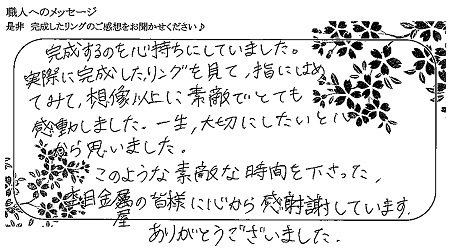 職人へのメッセージ
是非 完成したリングのご感想をお聞かせください♪
完成するのを心待ちにしていました。
実際に完成したリングを見て、指にはめ
てみて、想像以上に素敵でとても
感動しました。一生、大切にしたいと心
から思いました。
このような素敵な時間を下さった、
杢目金屋の皆様に心から感謝しています。
ありがとうございました。